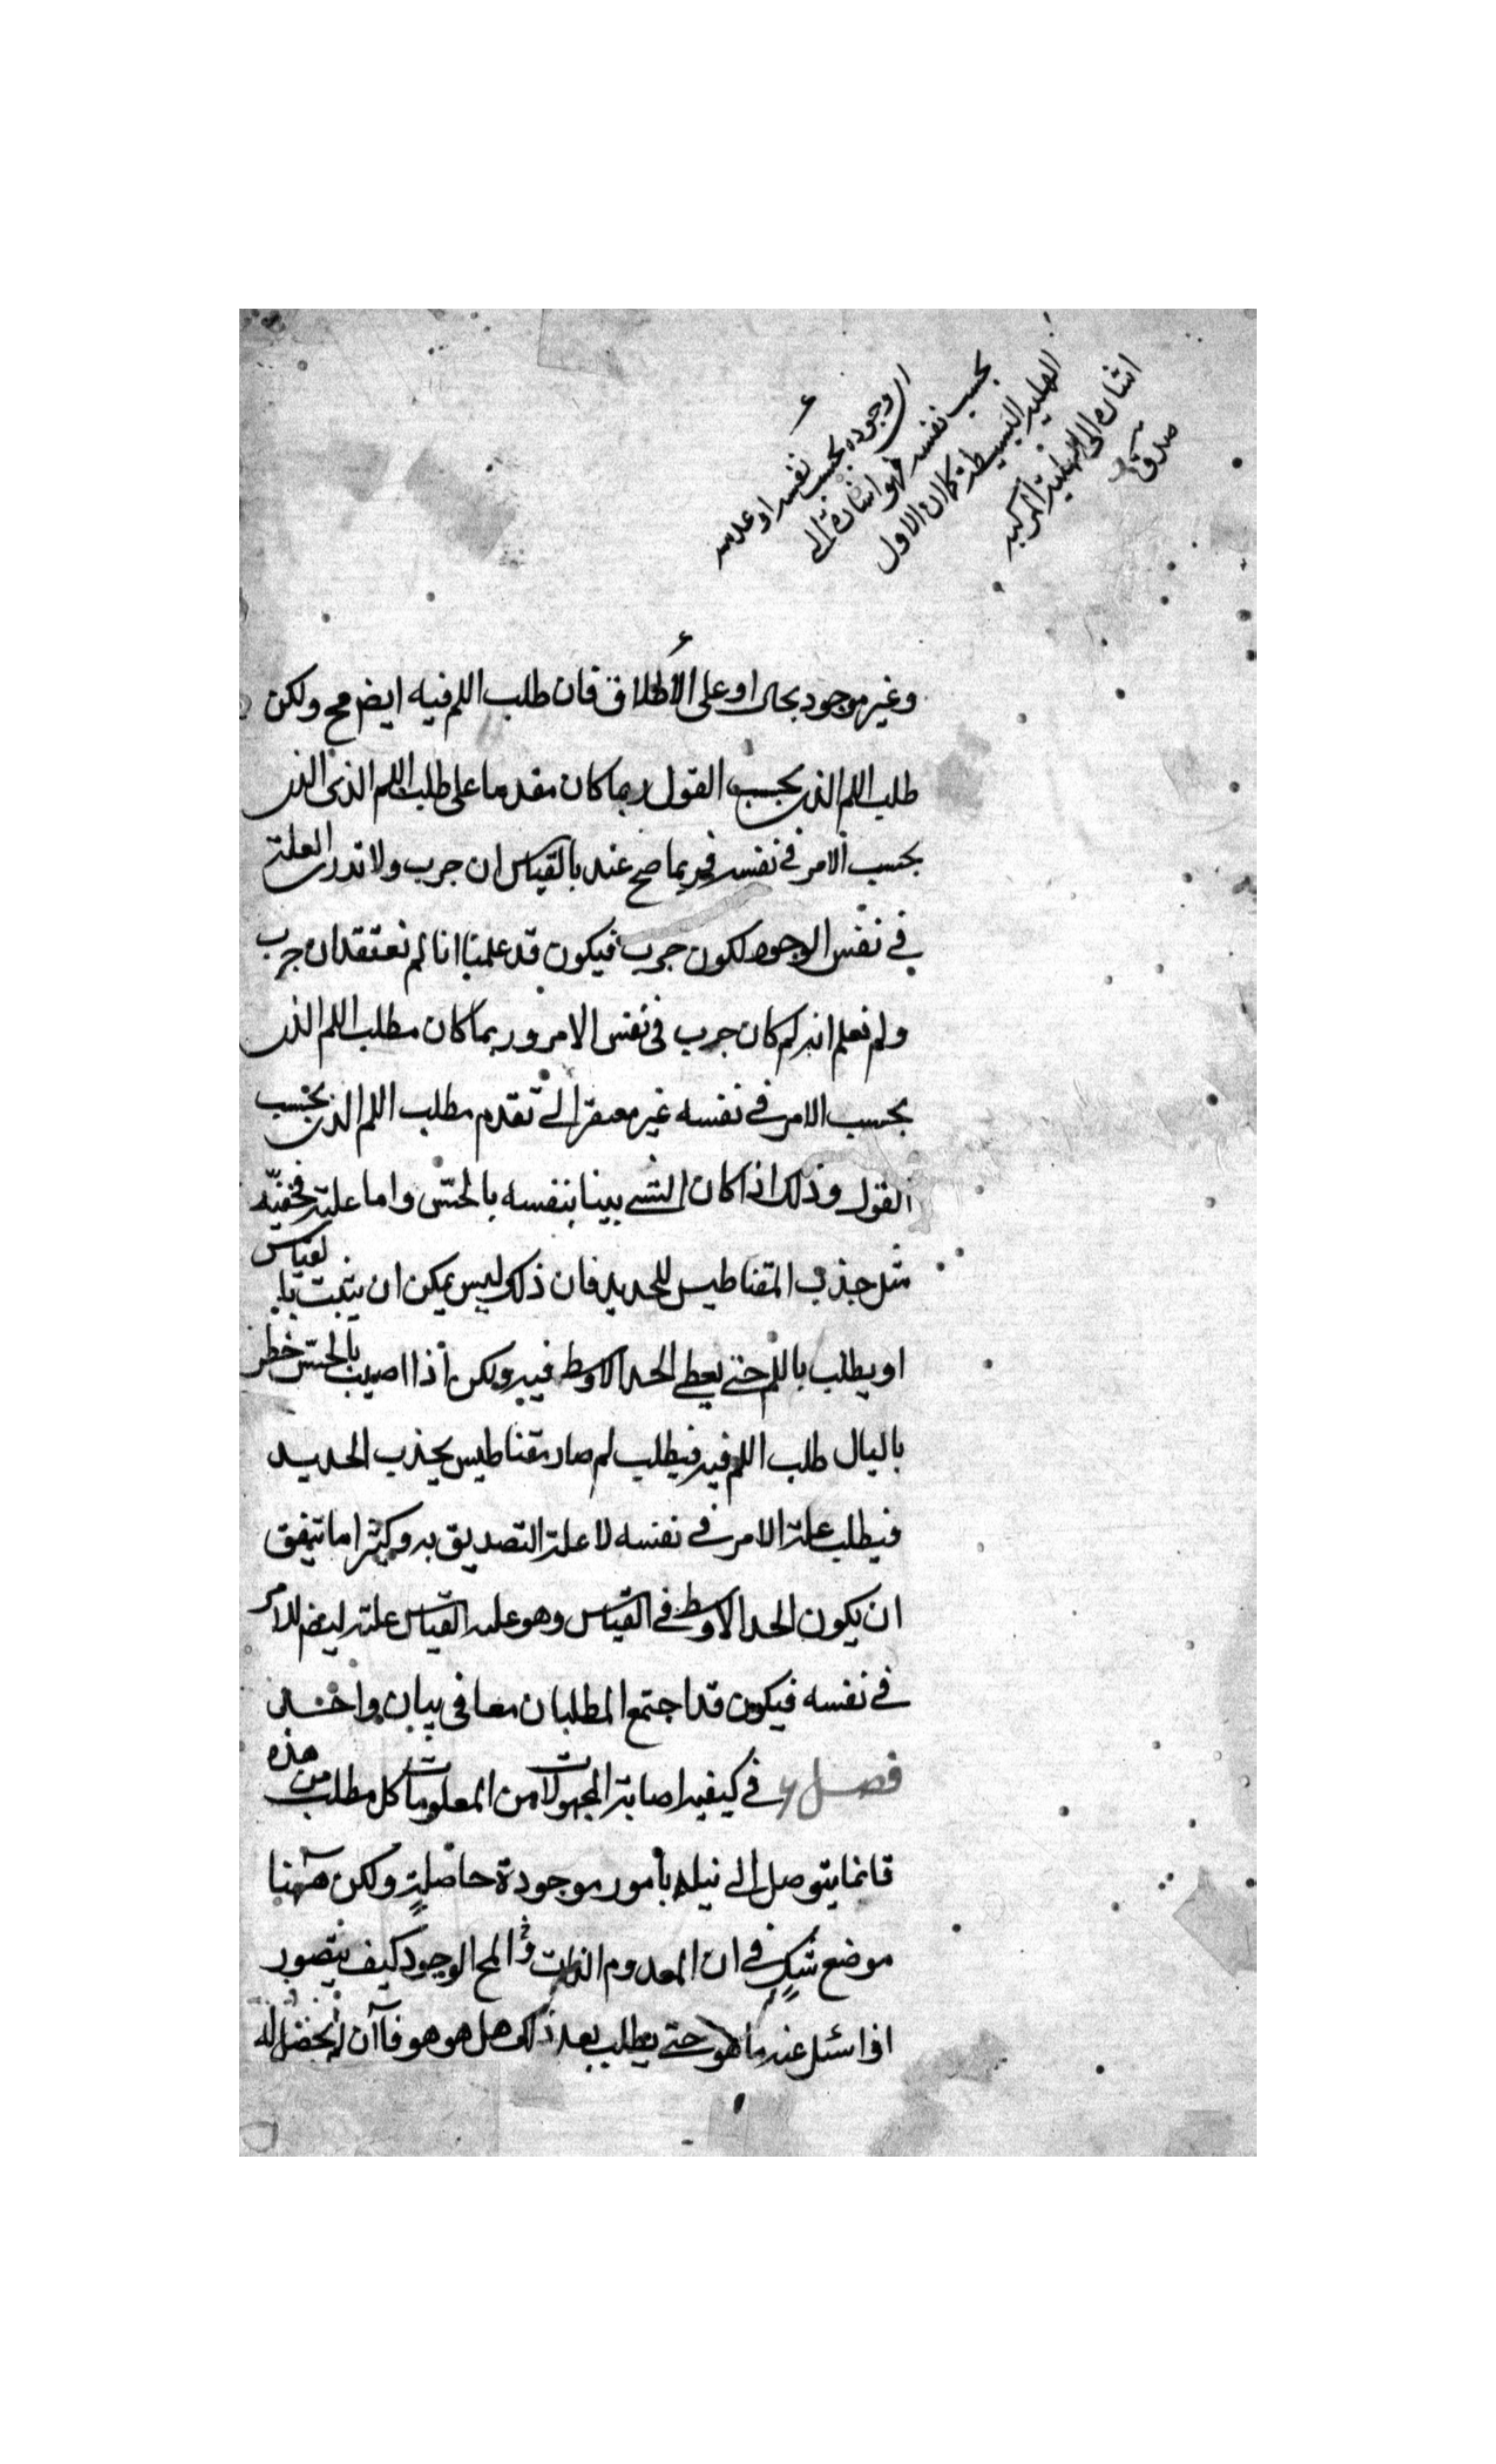 اى وجوده بحسب نفسه او عدمه
بحسب نفسه فهو اشارة الى
الهلية البسيطة كما ان الاول
اشارة الى الهلية المركبة
وغير موجود بحال او على الاطلاق فان طلب اللم فيه ايض مح ولكن
طلب اللم الذى بحسب القول ربما كان مقدما على طلب اللم الذى الذى
بحسب الامر فى نفسه فربما صح عنده بالقياس ان ج ب ولا ندرى العلة
فى نفس الوجود لكون ج ب فيكون قد علمنا انا لم نعتقد ان ج ب
ولم نعلم انه لم كان ج ب فى نفس الامر وربما كان مطلب اللم الذى
بحسب الامر فى نفسه غير مفتقر الى تقدم مطلب اللم الذى بحسب
القول وذلك اذا كان الشىء بينا بنفسه بالحس واما علته فخفية
مثل جذب المقناطيس للحديد فان ذلك ليس يمكن ان يثبت بالقياس
او يطلب باللم حتى يعطى الحد الاوسط فيه ولكن اذا اصيب بالحس خطر
بالبال طلب اللم فيه فيطلب لم صار مقناطيس يجذب الحديد
فيطلب علة الامر فى نفسه لا علة التصديق به وكثيرا ما يتفق
ان يكون الحد الاوسط فى القياس وهو علة القياس علة ايض للامر
فى نفسه فيكون قد اجتمع المطلبان معا فى بيان واحد
فصل ٦ فى كيفية اصابة المجهولات من المعلومات كل مطلب من هذه
فانما يتوصل الى نيله بامور موجودة حاصلة ولكن ههنا
موضع شك فى ان المعدوم الذات المح الوجود كيف يتصور
اذا سئل عنه ما هو حتى يطلب بعد ذلك هل هو هو فان لم يحصل له